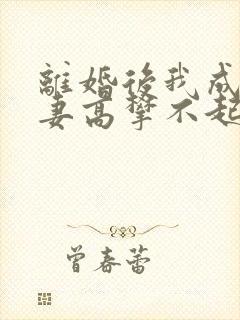 離婚後我成
妻高攀不起
曾春蕾